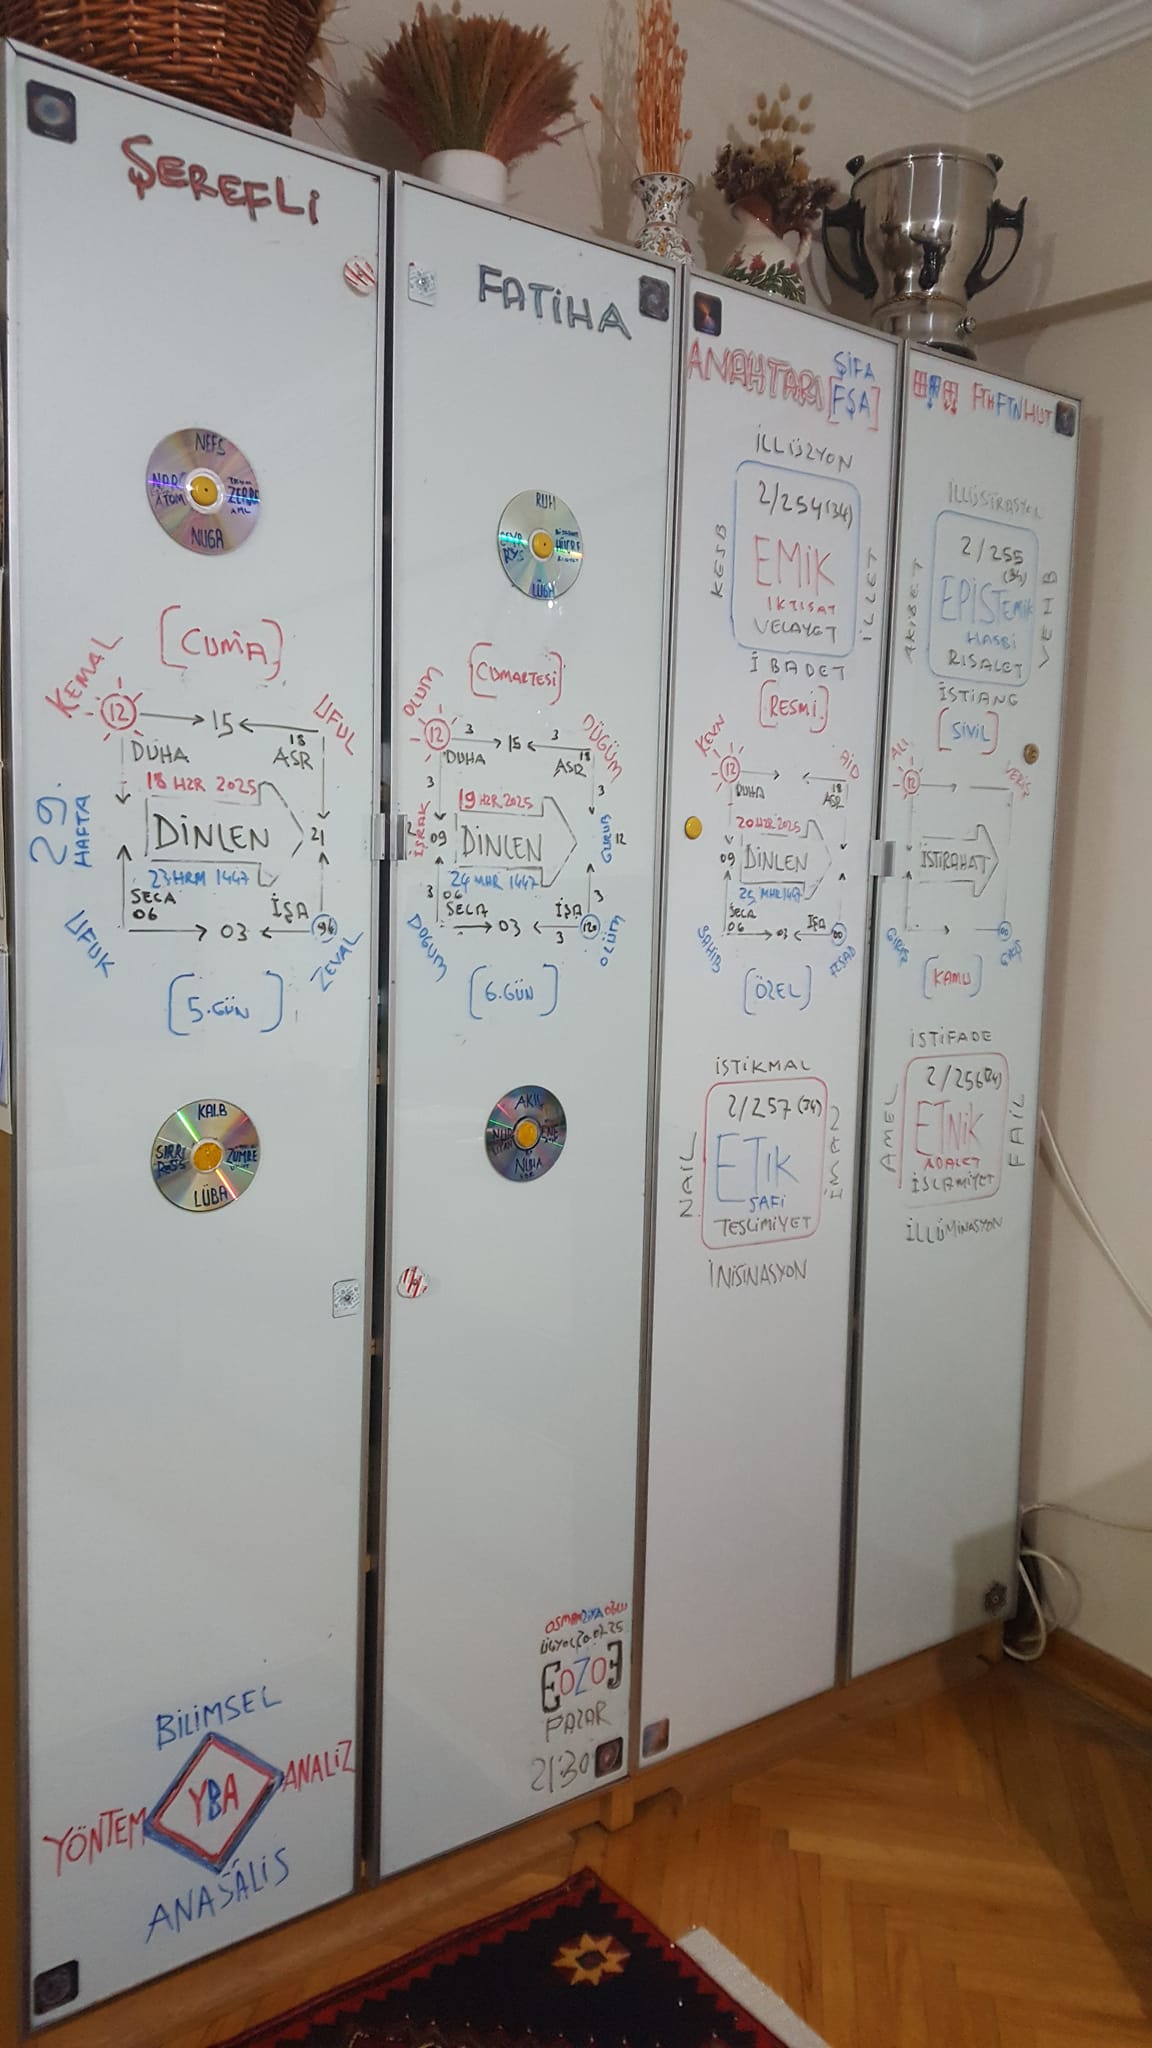 ŞEREFLİ
NEFS
ATOM
ZERRE
NUGA
[CUMA]
KEMAL
UFUL
12
15
18
DUHA
ASR
18 HZR 2025
29.
HAFTA
DİNLEN
21
23 HRM 1447
SECA
06
İŞA
03
UFUK
ZEVAL
[5.GÜN]
KALB
SIRRI
ZÜMRE
LÜBA
BİLİMSEL
YÖNTEM
YBA
ANALİZ
ANAŞALİS
FATİHA
RUH
[CUMARTESİ]
OLUM
DÜĞÜM
12
3
15
3
18
DUHA
ASR
3
3
19 HZR 2025
İŞRAK
09
DİNLEN
GURUB
12
24 MHR 1447
3
06
SECA
İŞA
3
03
3
120
DOĞUM
ÖLÜM
[6.GÜN]
AKIL
NUHA
OSMANZİYAOĞLU
EOZOE
PAZAR
21:30
ANAHTARI
ŞİFA
[FŞA]
İLLÜZYON
2/254(34)
KESB
EMİK
İKTİSAT
VELAYET
İLLET
İBADET
[RESMİ]
KEVN
12
DUHA
18
ASR
20 HZR 2025
09
DİNLEN
25 MHR 1447
SECA
06
İŞA
03
00
SAHİB
[ÖZEL]
İSTİKMAL
2/257(34)
NAİL
ETİK
SAFİ
TESLİMİYET
İNİSİNASYON
FTHFTNHUT
İLLÜSTRASYEL
2/255
(34)
AKIBET
EPİSTEMİK
HASBİ
RİSALET
VEHB
İSTİANG
[SİVİL]
ALI
VERİŞ
12
İSTİRAHAT
00
[KAMU]
İSTİFADE
2/256(34)
AMEL
ETNİK
ADALET
İSLAMİYET
FAİL
İLLÜMİNASYON